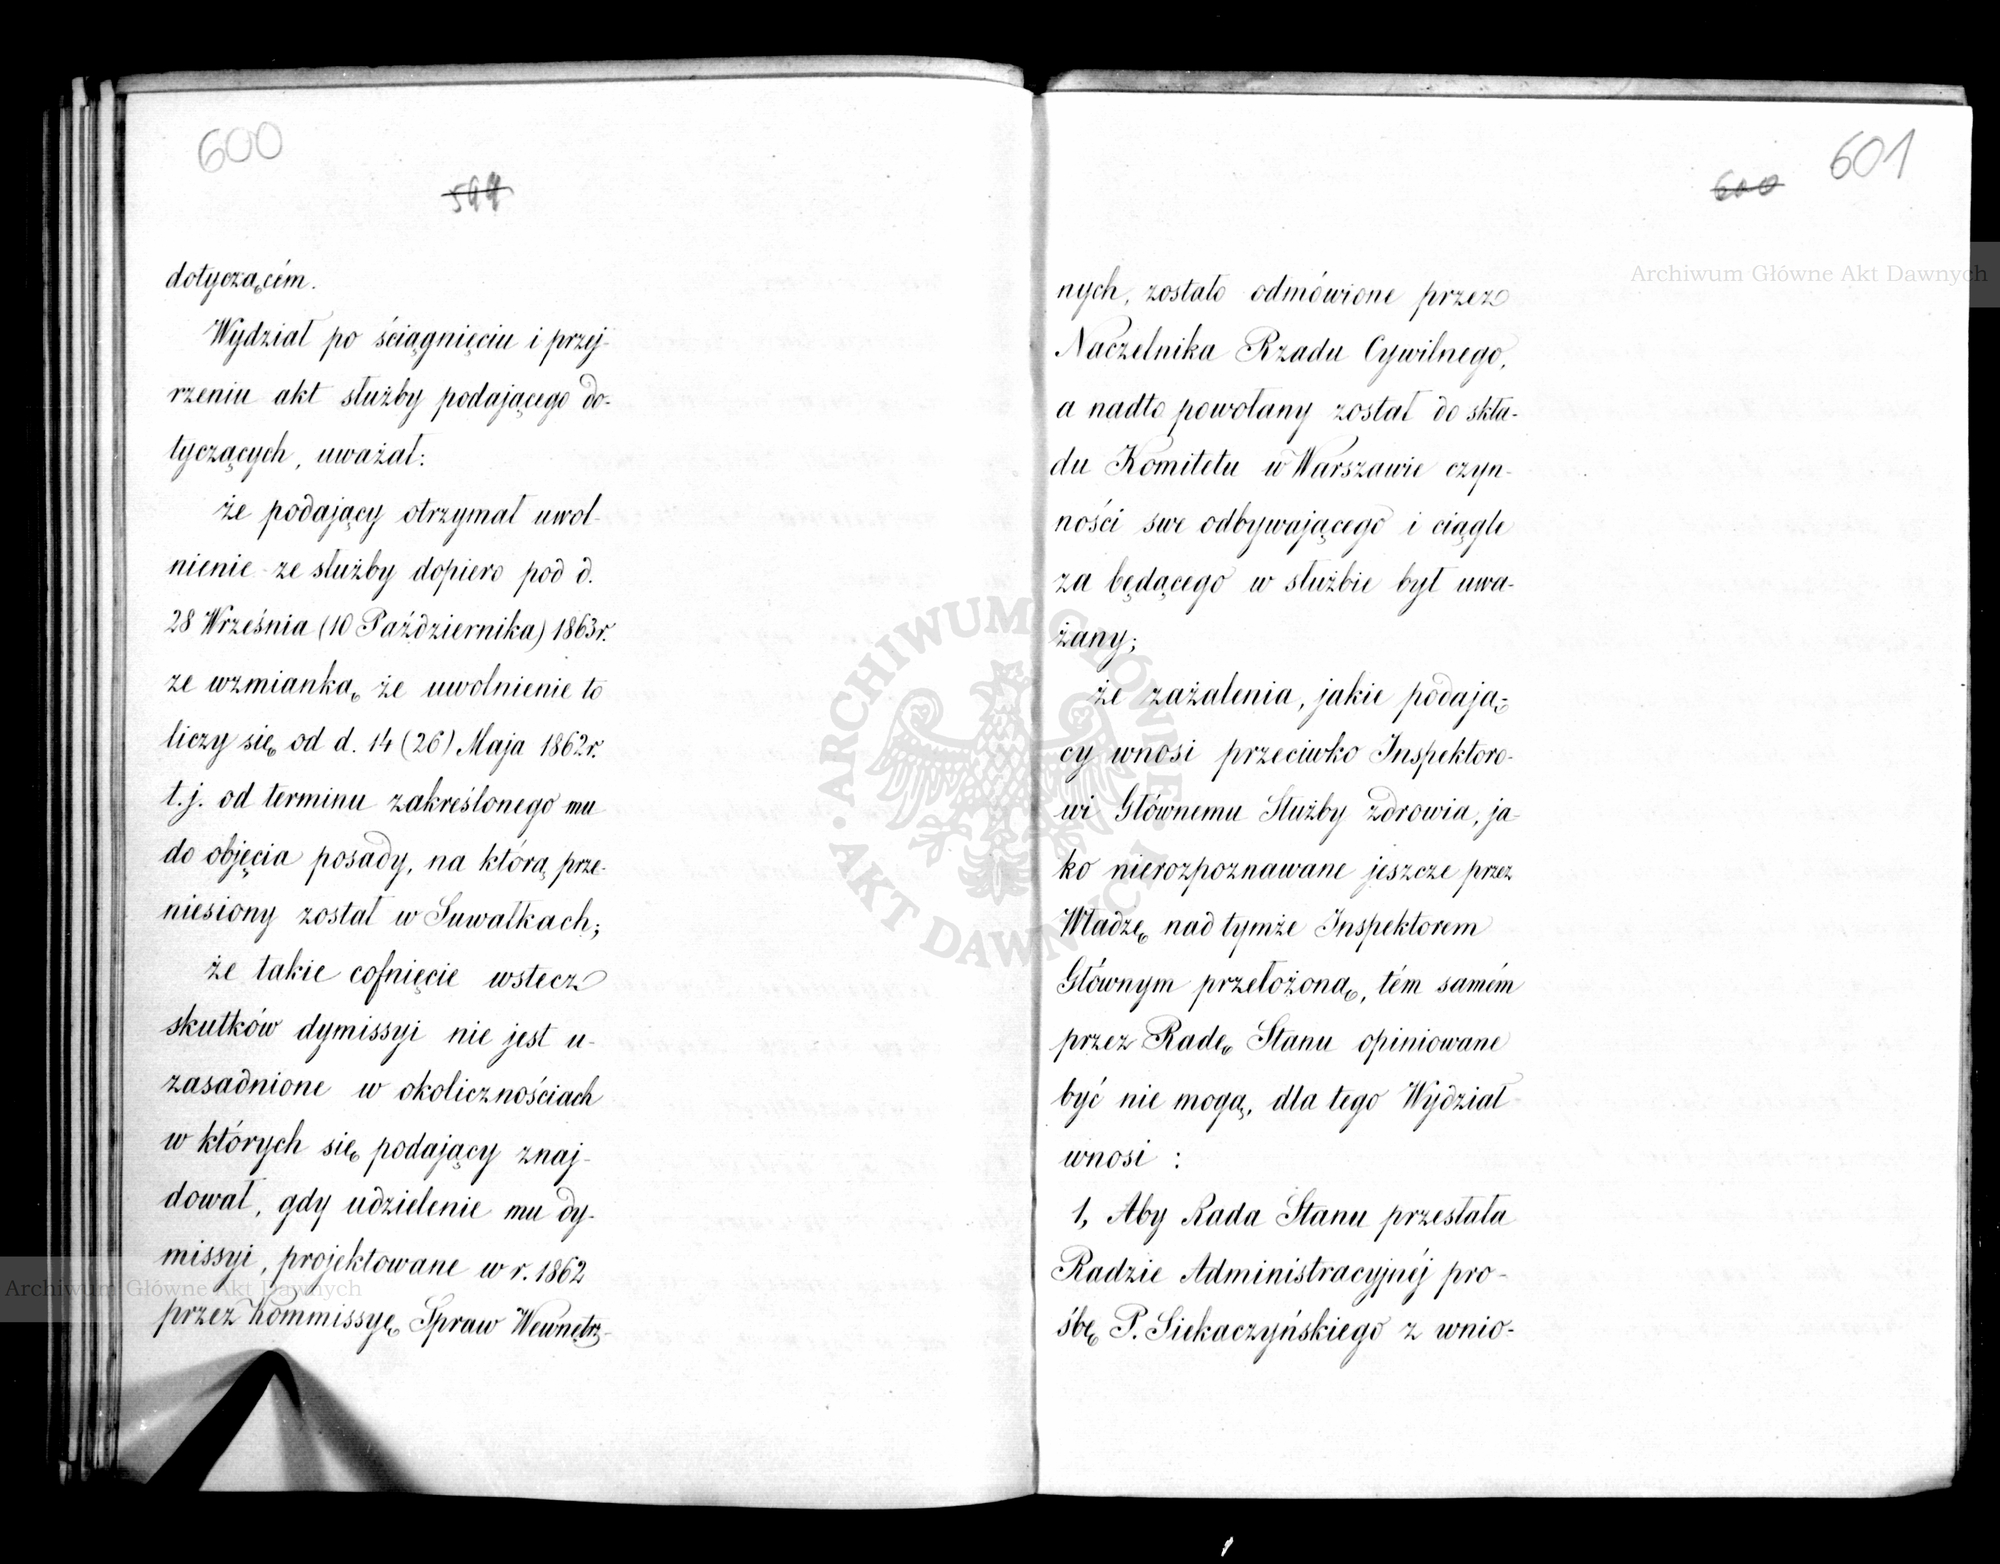 600
599
dotyczącém.
Wydział po ściągnięciu i przej-
rzeniu akt służby podającego do-
tyczących, uważał:
że podający otrzymał uwol-
nienie ze służby dopiero pod d.
28 Września (10 Października) 1863 r.
ze wzmianką, że uwolnienie to
liczy się od d. 14 (26) Maja 1862 r.
t. j. od terminu zakreślonego mu
do objęcia posady, na którą prze-
niesiony został w Suwałkach;
że takie cofnięcie wstecz
skutków dymissyi nie jest u-
zasadnione w okolicznościach
w których się podający znaj-
dował, gdy udzielenie mu dy-
missyi, projektowane w r. 1862
przez Kommissyę Spraw Wewnętrz-
601
600
nych, zostało odmówione przez
Naczelnika Rządu Cywilnego,
a nadto powołany został do skła-
du Komitetu w Warszawie czyn-
ności swe odbywającego i ciągle
za będącego w służbie był uwa-
żany;
że zażalenia, jakie podają-
cy wnosi przeciwko Inspektoro-
wi Głównemu Służby zdrowia, ja-
ko nierozpoznawane jeszcze przez
Władzę nad tymże Inspektorem
Głównym przełożoną, tém samém
przez Radę Stanu opiniowane
być nie mogą, dla tego Wydział
wnosi :
1, Aby Rada Stanu przesłała
Radzie Administracyjnéj pro-
śbę P. Siekaczyńskiego z wnio-
Archiwum Główne Akt Dawnych
Archiwum Główne Akt Dawnych
· ARCHIWUM GŁÓWNE · AKT DAWNYCH